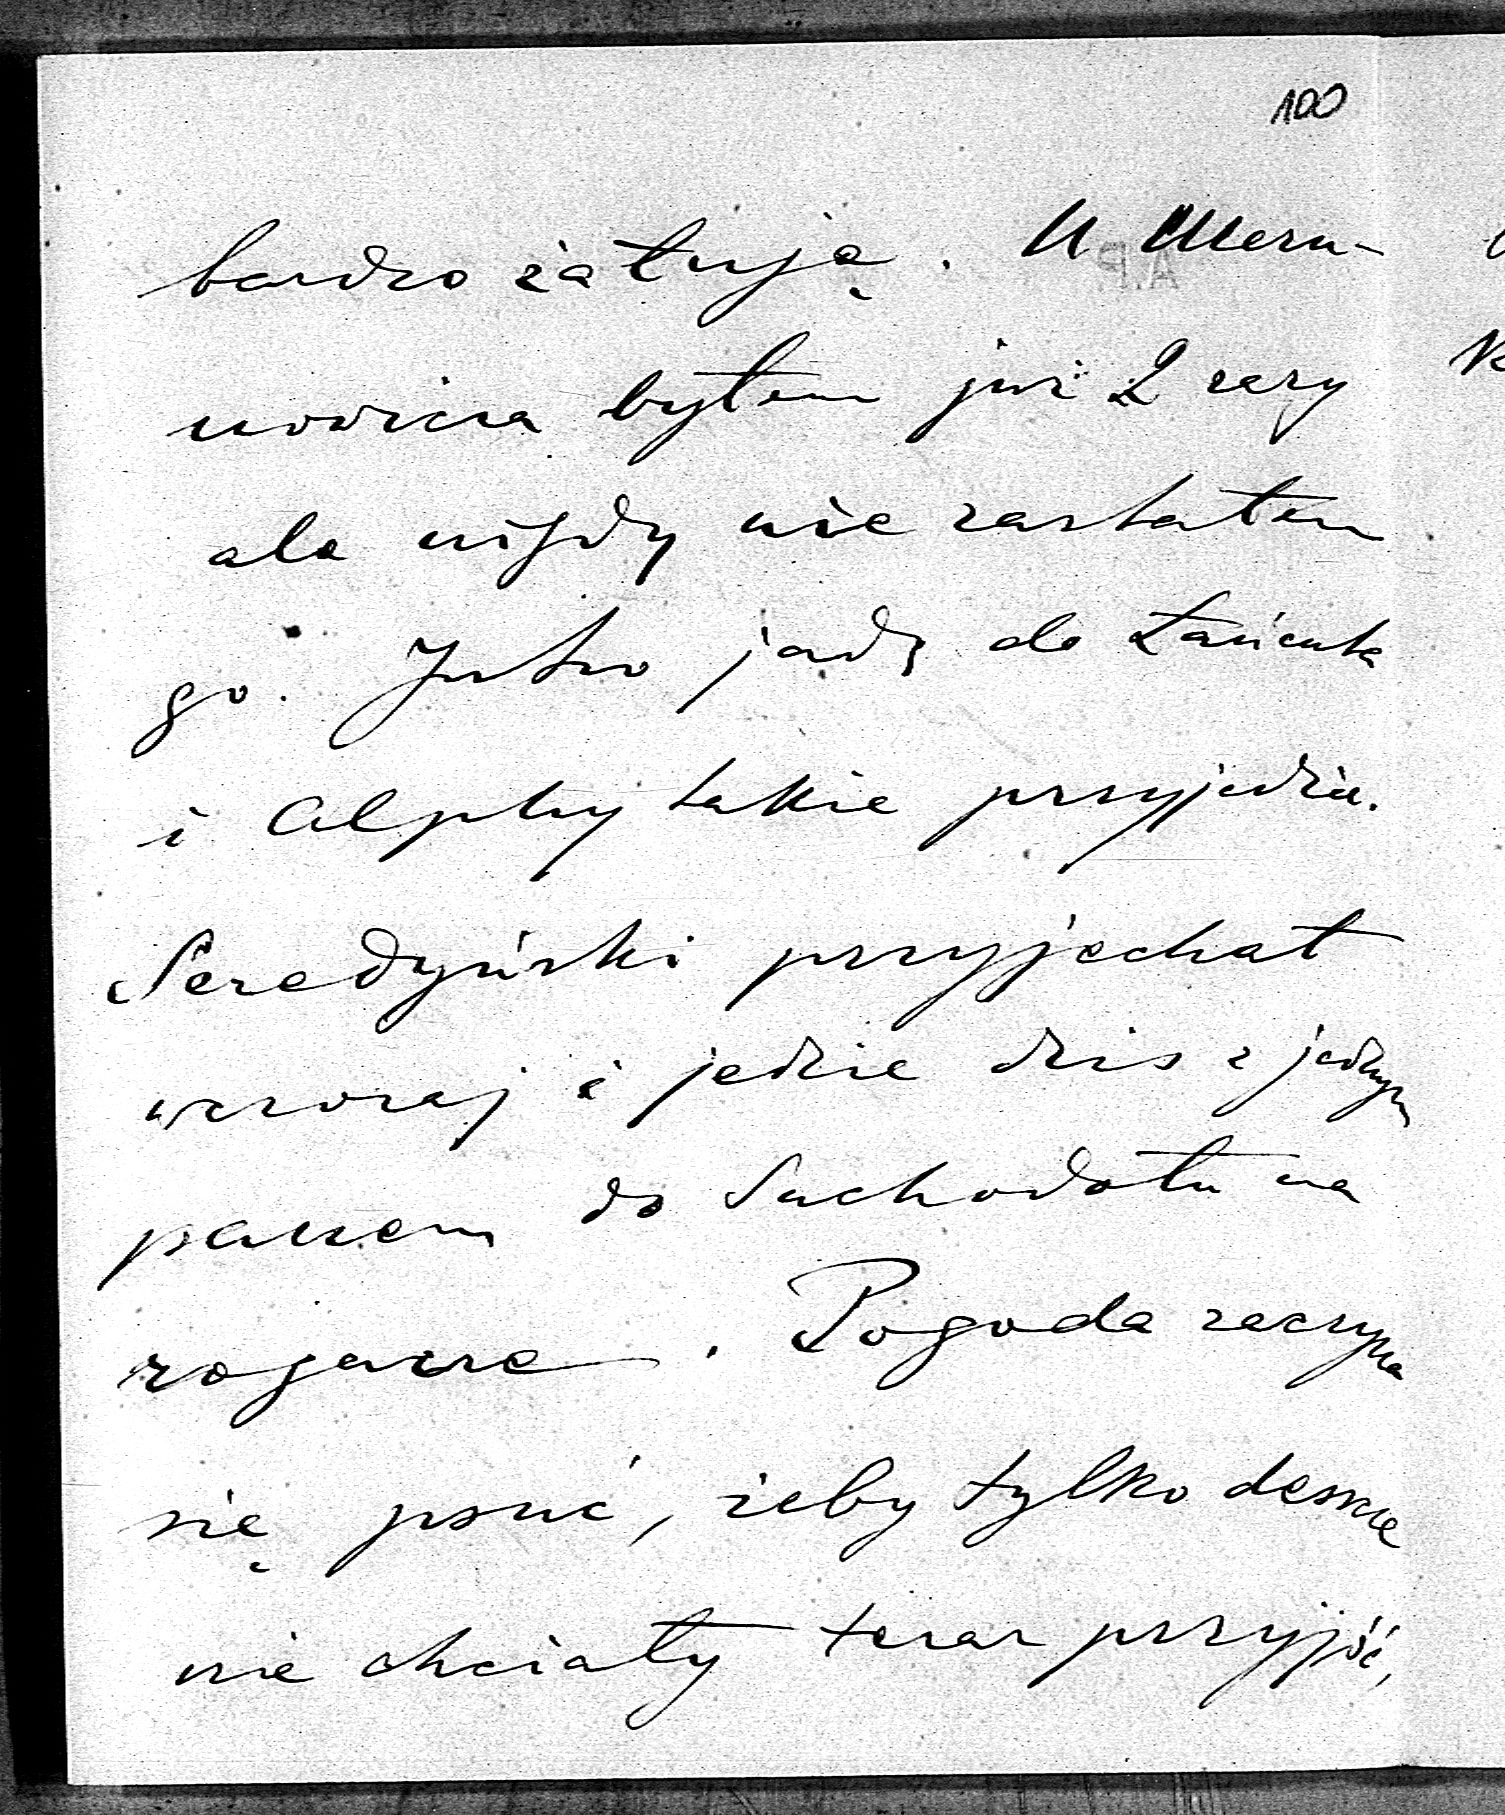 100
bardzo żałują. U Meru-
nowicza byłem już 2 razy
ale nigdy nie zastałem
go. Jutro jadę do Łańcuta
i Alphy także przyjedzie.
Seredyński przyjechał
wczoraj i jedzie dziś z jednym
panem do Suchodołu na
rogacze. Pogoda zaczyna
się psuć, żeby tylko deszcze
nie chciały teraz przyjść,